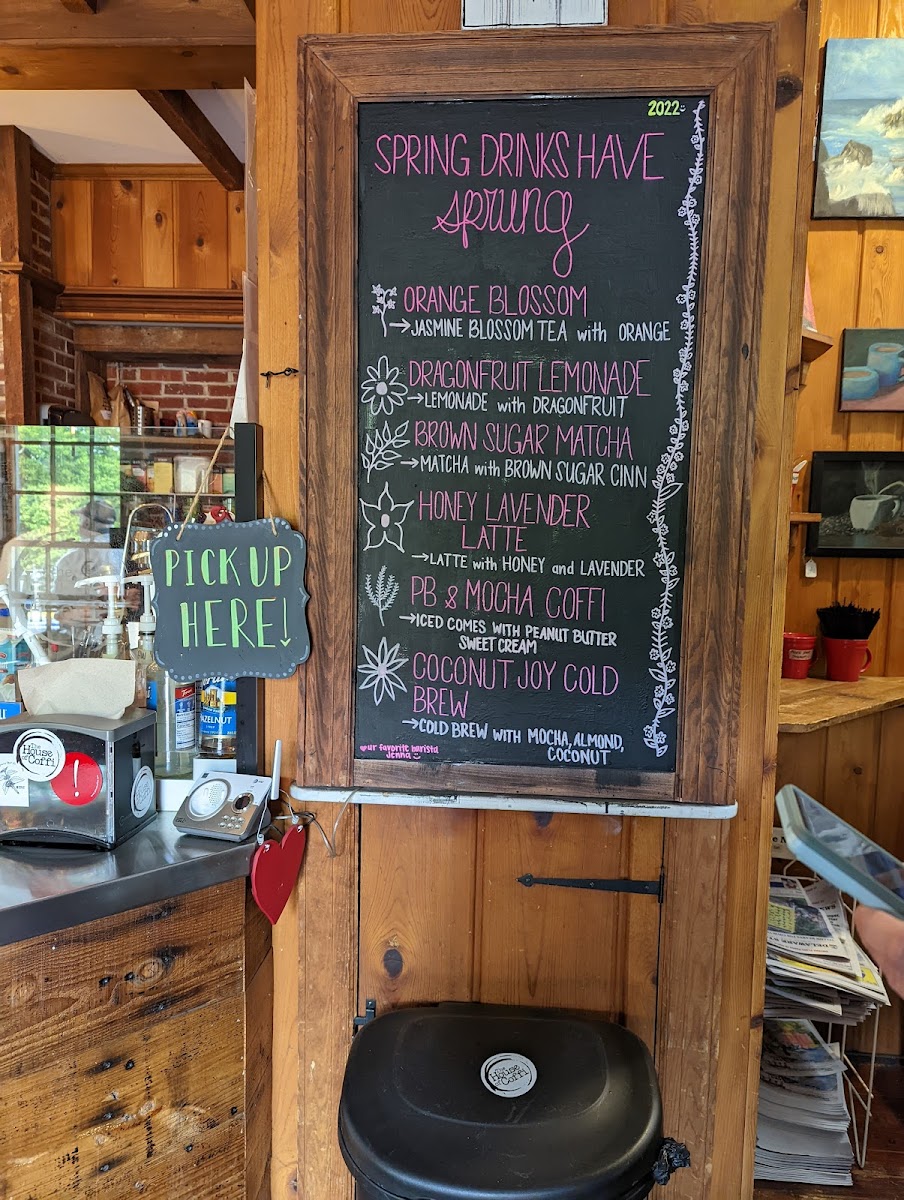 2022
SPRING DRINKS HAVE
sprung
ORANGE BLOSSOM
→JASMINE BLOSSOM TEA with ORANGE
DRAGONFRUIT LEMONADE
→LEMONADE with DRAGONFRUIT
BROWN SUGAR MATCHA
→MATCHA with BROWN SUGAR CINN
HONEY LAVENDER
LATTE
→LATTE with HONEY and LAVENDER
PB & MOCHA COFFI
→ICED COMES WITH PEANUT BUTTER
SWEET CREAM
COCONUT JOY COLD
BREW
→COLD BREW WITH MOCHA, ALMOND,
COCONUT
♥ur favorite barista
Jenna
PICK UP
HERE!
HAZELNUT
The
House
of Coffi
!
The
House
of Coffi
DELAWARE